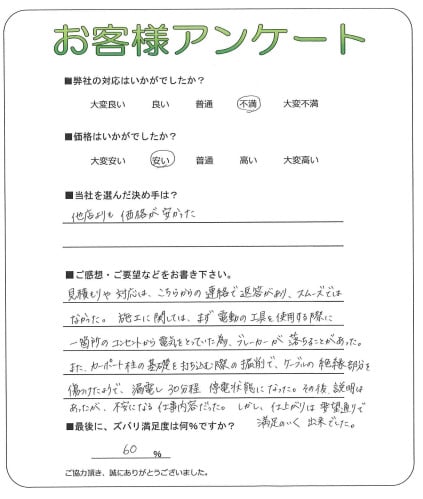 お客様アンケート
■弊社の対応はいかがでしたか？
大変良い 良い 普通 不満 大変不満
■価格はいかがでしたか？
大変安い 安い 普通 高い 大変高い
■当社を選んだ決め手は？
他店よりも価格が安かった
■ご感想・ご要望などをお書き下さい。
見積もりや対応は、こちらからの連絡で返答があり、スムーズでは
なかった。 施工に関しては、まず電動の工具を使用する際に
一箇所のコンセントから電気をとっていた為、ブレーカーが落ちることがあった。
また、カーポート柱の基礎を打ち込む際の掘削で、ケーブルの絶縁部分を
傷つけたようで、漏電し30分程 停電状態になった。その後、説明は
あったが、不安になる仕事内容だった。しかし、仕上がりは要望通りで
満足のいく出来でした。
■最後に、ズバリ満足度は何％ですか？
60 %
ご協力頂き、誠にありがとうございました。